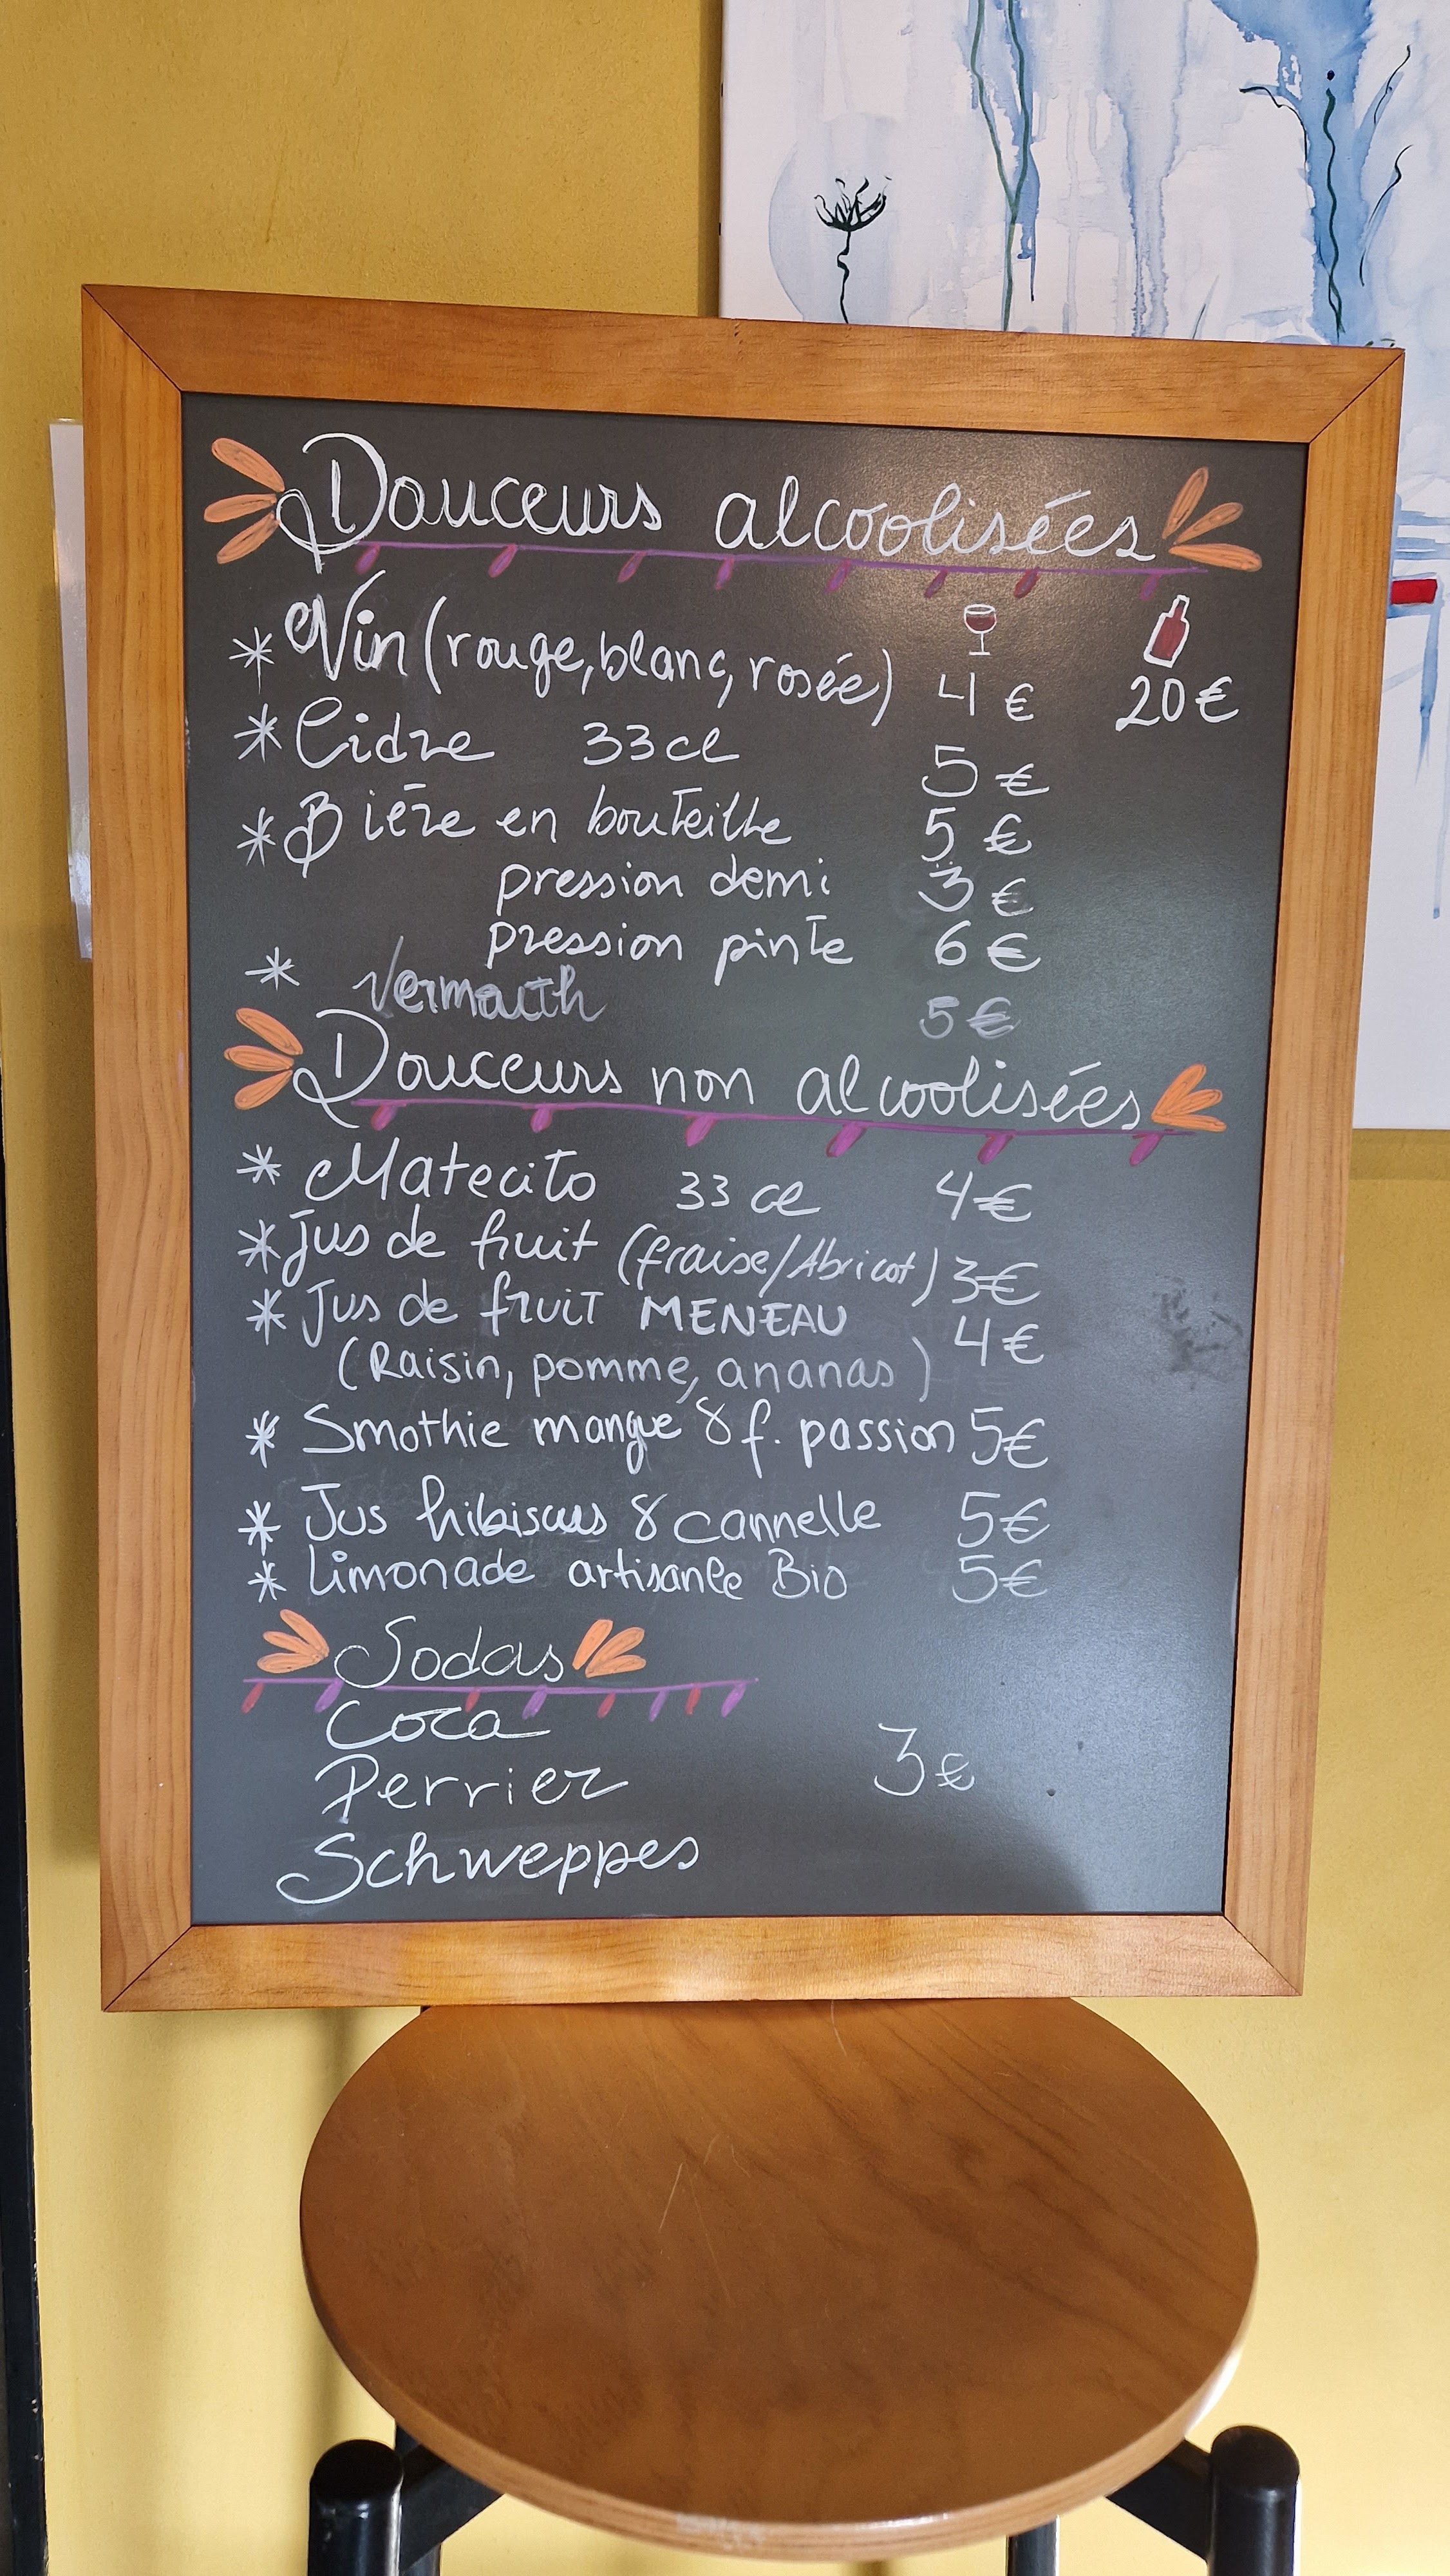 Douceurs alcoolisées
* Vin (rouge, blanc, rosée) 4€ 20€
* Cidre 33cl 5€
* Bière en bouteille 5€
pression demi 3€
pression pinte 6€
* Vermouth 5€
Douceurs non alcoolisées
* Matecito 33cl 4€
* Jus de fruit (fraise/Abricot) 3€
* Jus de fruit MENEAU 4€
(Raisin, pomme, ananas)
* Smothie mangue & f. passion 5€
* Jus hibiscus & cannelle 5€
* Limonade artisanle Bio 5€
Sodas
Coca
Perrier 3€
Schweppes